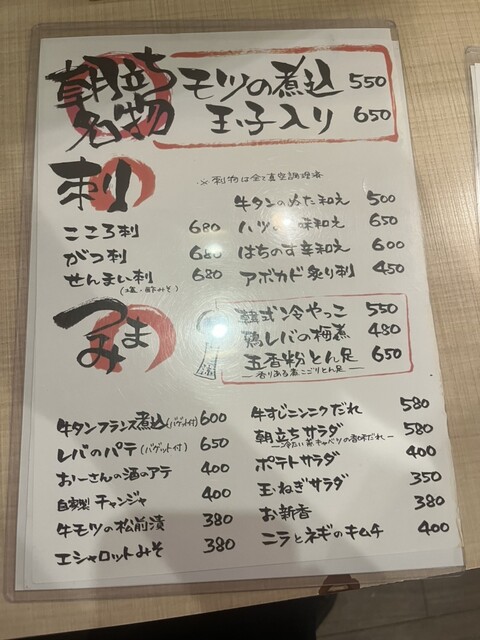 朝立ち名物
モツの煮込 550
玉子入り 650
刺り
※刺物は全て真空調理済
こころ刺 680
がつ刺 680
せんまい刺 680
牛タンのぬた和え 500
味和え 650
はちのす辛和え 600
アボカド炙り刺 450
つまみ
韓式冷やっこ 550
鶏レバの梅煮 480
五香粉とん足 650
香りある煮こごりとん足
牛タンフランス煮込(バゲット付) 600
レバのパテ(バゲット付) 650
おーさんの酒のアテ 400
自家製チャンジャ 400
牛モツの松前漬 380
エシャロットみそ 380
牛すじニンニクだれ 580
朝立ちサラダ 580
ポテトサラダ 400
玉ねぎサラダ 350
お新香 380
ニラとネギのキムチ 400